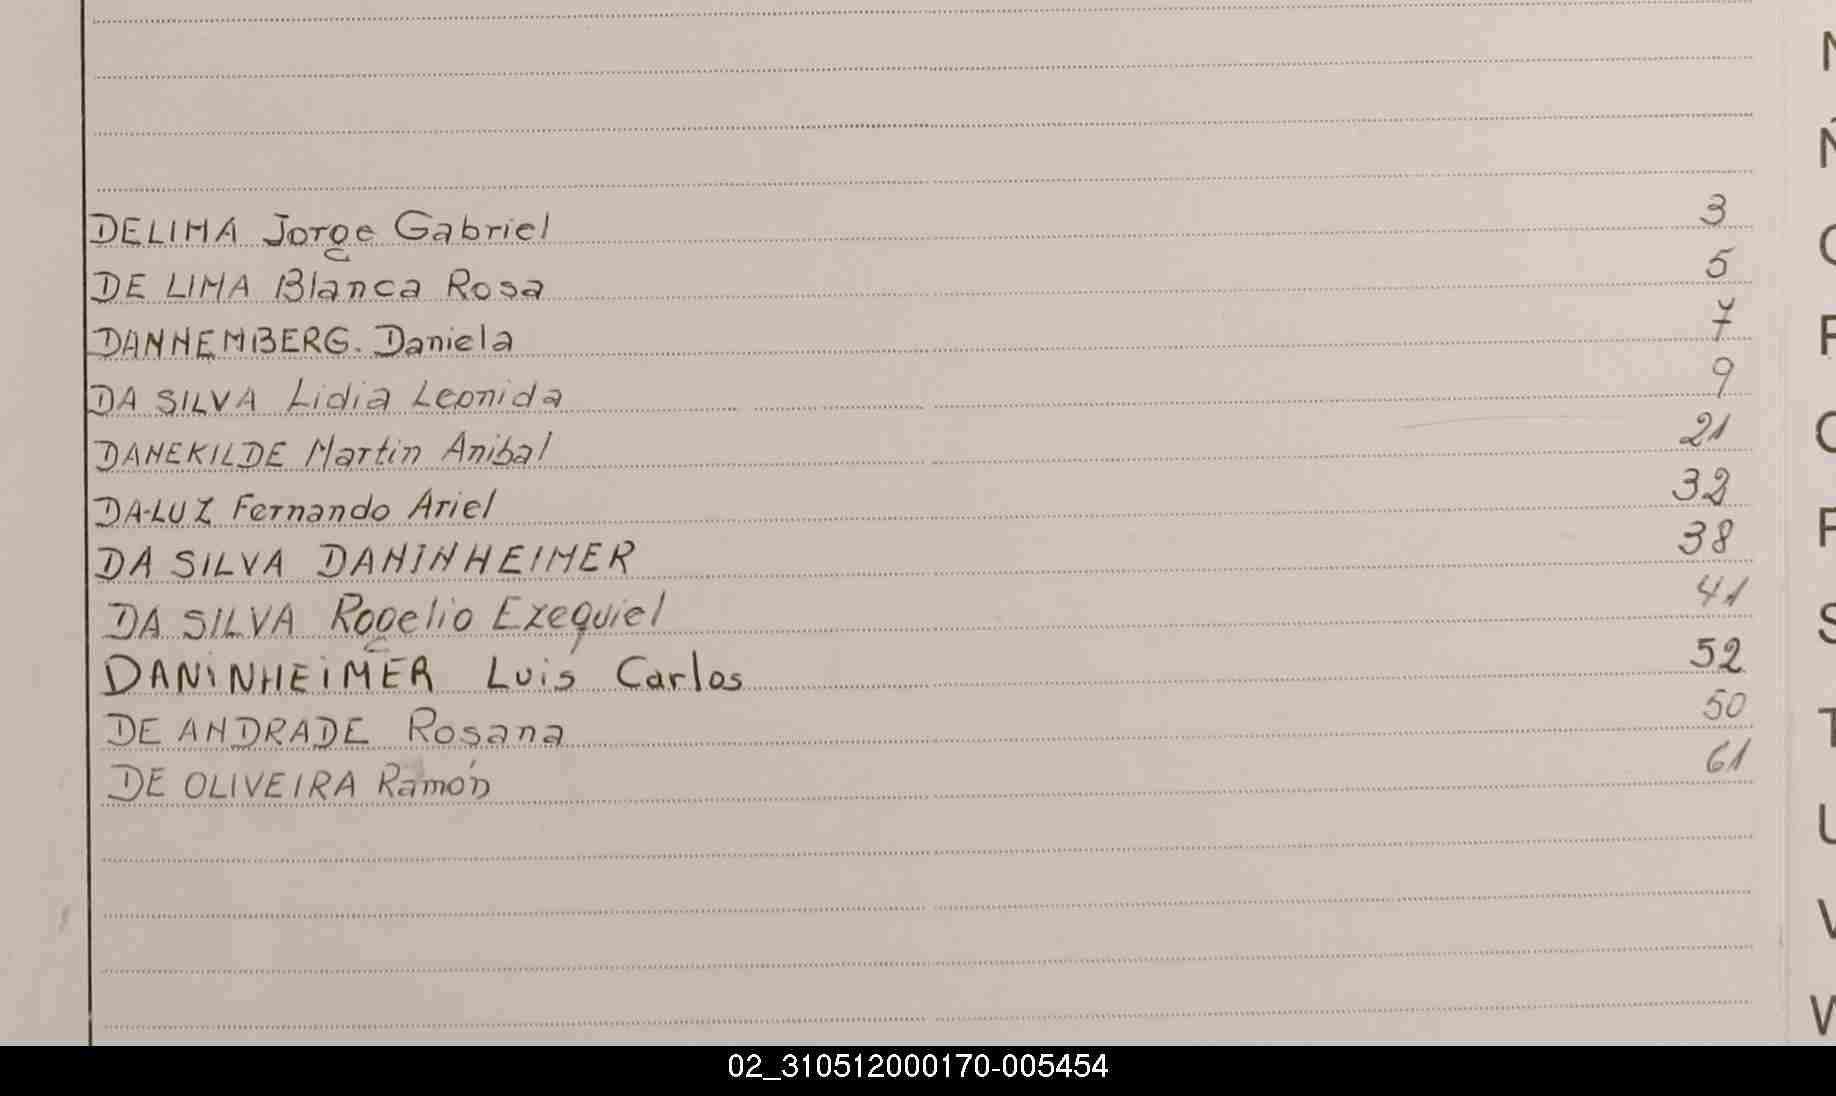 DELIMA Jorge Gabriel 3
DE LIMA Blanca Rosa 5
DANNEMBERG. Daniela 7
DA SILVA Lidia Leonida 9
DANEKILDE Martin Anibal 21
DA-LUZ Fernando Ariel 32
DA SILVA DANINHEIMER 38
DA SILVA Rogelio Ezequiel 41
DANINHEIMER Luis Carlos 52
DE ANDRADE Rosana 50
DE OLIVEIRA Ramón 61
N
Ñ
O
P
Q
R
S
T
U
V
W
02_310512000170-005454